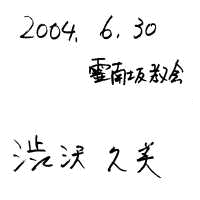 2004. 6. 30
霊南坂教会
渋沢久美